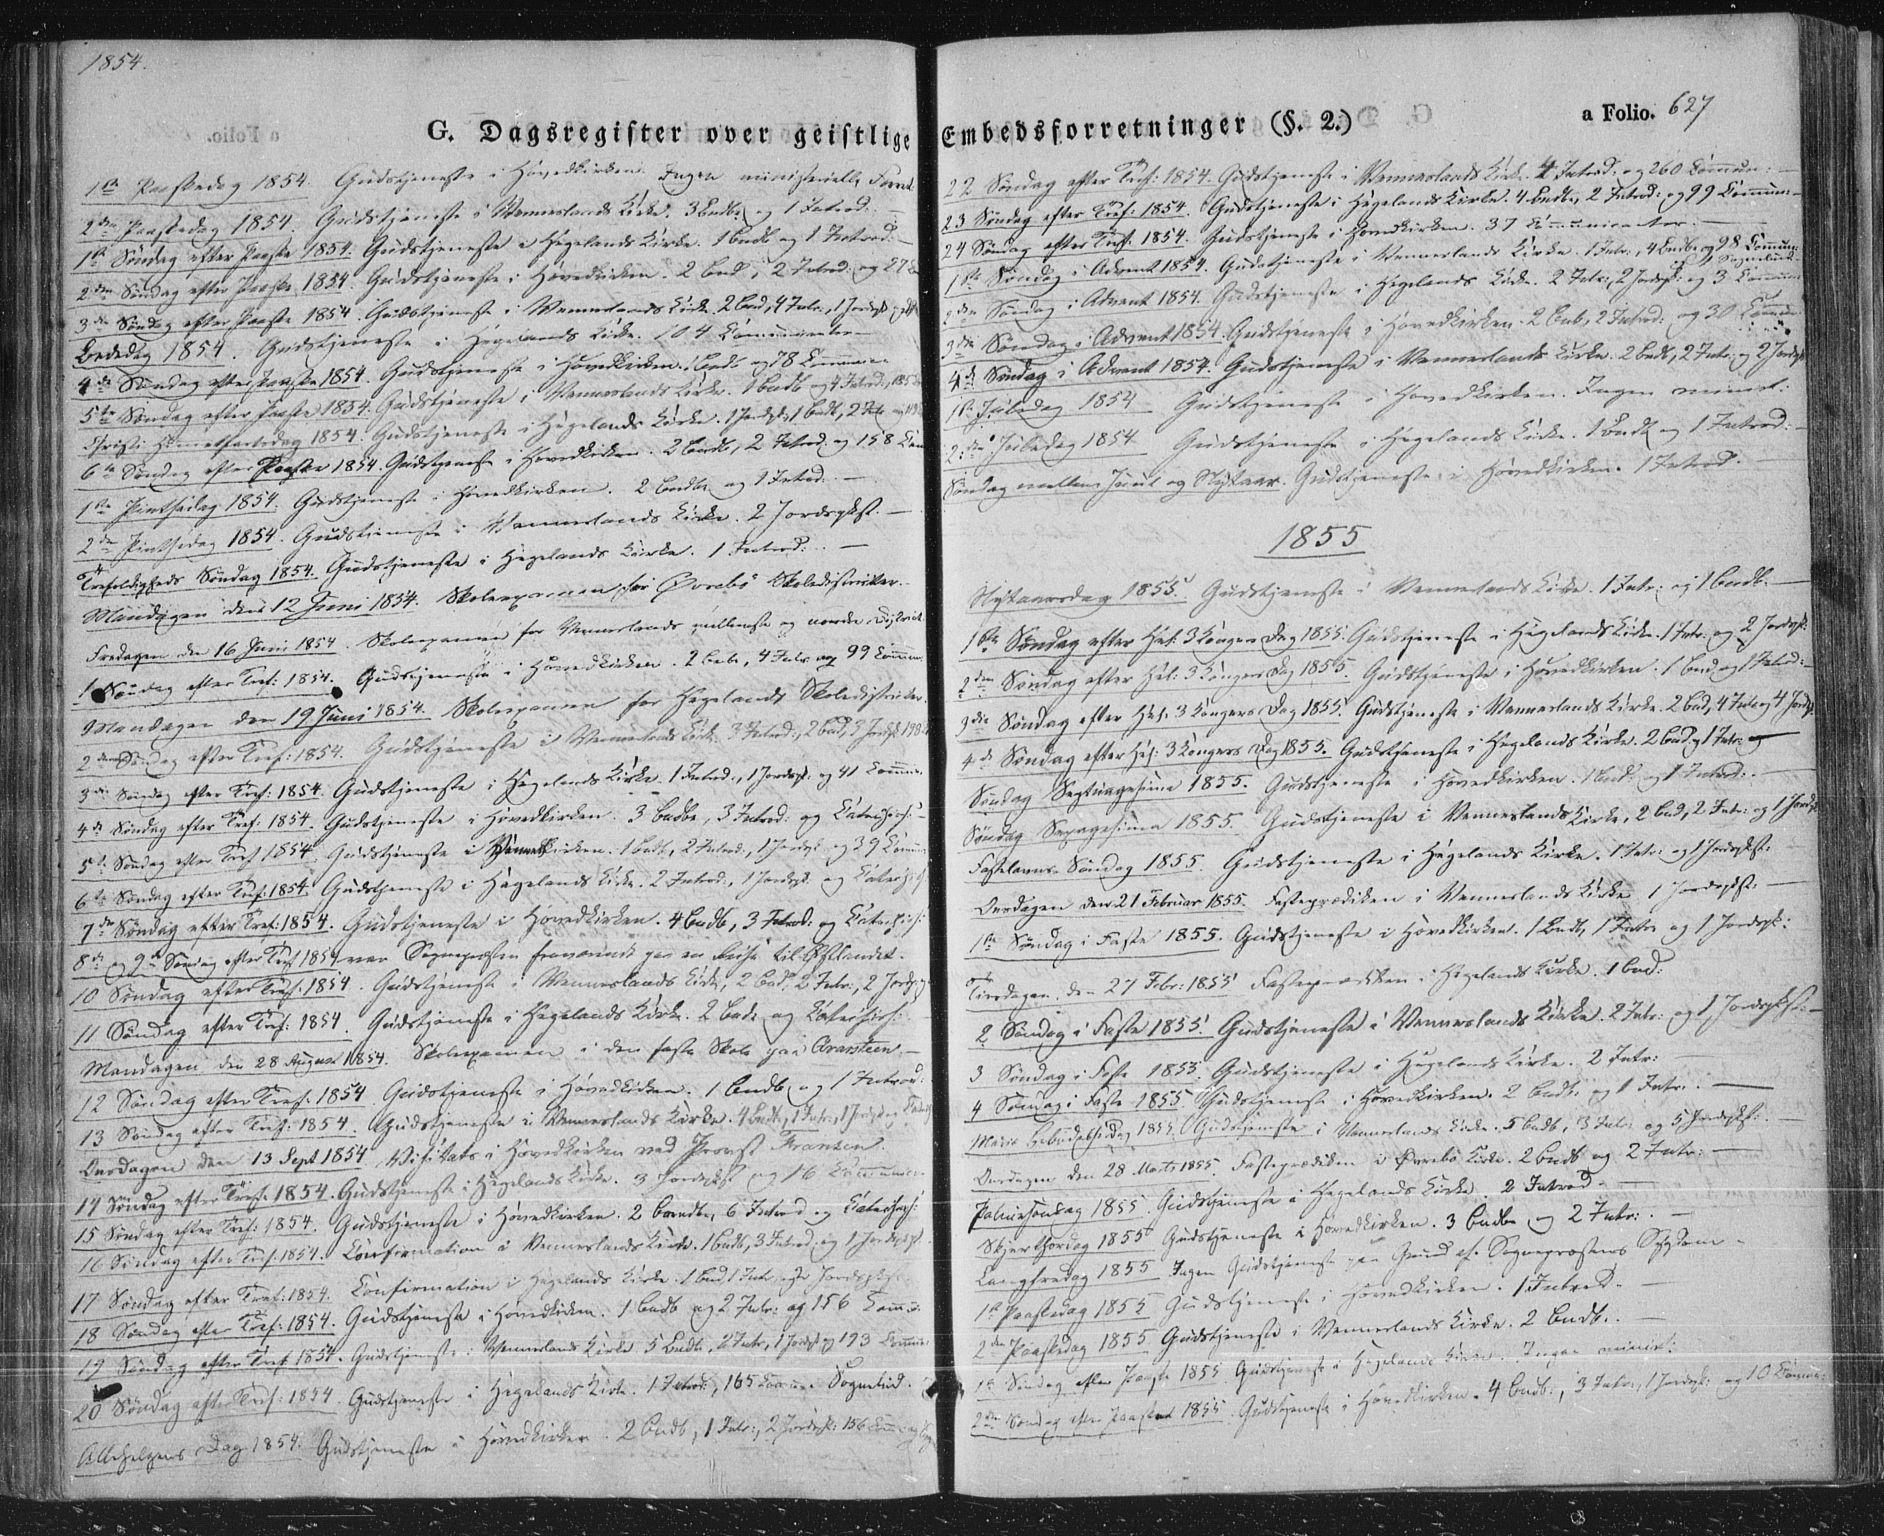 1854.
G. Dagsregister over geistlige
1ste Paaskedag 1854. Gudstjeneste i Hovedkirken. Ingen ministerielle Forret
2den Paaskedag 1854. Gudstjeneste i Vennerslands Kirke. 3 Badb. og 1 Introd:
1ste Søndag efter Paaske 1854. Gudstjeneste i Hegelands Kirke. 1 Badb og 1 Introd:
2den Søndag efter Paaske 1854. Gudstjeneste i Hovedkirken. 2 Bad, 2 Introd: og 27
3die Søndag efter Paaske 1854. Gudstjeneste i Vennerslands Kirke. 2 bad, 4 Intr., 1 Jordspk
Bededag 1854. Gudstjeneste i Hegelands Kirke. 104 Communicanter
4de Søndag efter Paaske 1854. Gudstjeneste i Hovedkirken. 1 Badb og 78 Commun
5te Søndag efter Paaske 1854. Gudstjeneste i Vennerslands Kirke. 1 Badb og 4 Introd:
Christi Himmelfartsdag 1854. Gudstjeneste i Hegelands Kirke. 1 Jordspk, 1 badb, 2 Intr
6te Søndag efter Paaske 1854. Gudstjeneste i Hovedkirken. 2 badb, 2 Introd. og 158 Com
1ste Pintsedag 1854. Gudstjeneste i Hovedkirken. 2 badb og 1 Introd.
2den Pintsedag 1854. Gudstjeneste i Vennerslands Kirke. 2 Jordspkst.
Trefoldigheds Søndag 1854. Gudstjeneste i Hegelands Kirke. 1 Introd:
Mandagen den 12 Juni 1854. Skoleexamen for Øvrebø Skoledistricter.
Fredagen den 16 Juni 1854. Skoleexamen for Vennerslands mellemste og nordre District
1 Søndag efter Tref: 1854. Gudstjeneste i Hovedkirken. 2 badb, 4 Intr og 99 Commun
Mandagen den 19 Juni 1854. Skoleexamen for Hegelands Skoledistricter.
2den Søndag efter Tref: 1854. Gudstjeneste i Vennerslands Kirke. 3 Introd:, 2 bad, 3 Jordspk
3die Søndag efter Tref: 1854. Gudstjeneste i Hegelands Kirke. 1 Introd., 1 Jordspk. og 41 Commun.
4de Søndag efter Tref: 1854. Gudstjeneste i Hovedkirken. 3 badb, 3 Introd: og Catechis:
5te Søndag efter Tref 1854. Gudstjeneste i 1 badb, 2 Introd:, 1 Jordspk og 39 Commun
6te Søndag efter Tref: 1854. Gudstjeneste i Hegelands Kirke. 2 Introd:, 1 Jordspk. og Catechis
7de Søndag efter Tref: 1854. Gudstjeneste i Hovedkirken. 4 badb, 3 Introd: og Catechis:
8de og 9de Søndag efter Tref 1854 var Sognepræsten fraværende paa en Reise til Østlandet.
10 Søndag efter Tref: 1854. Gudstjeneste i Vennerslands Kirke, 2 Bad, 2 Intr:, 2 Jordspk
11 Søndag efter Tref: 1854. Gudstjeneste i Hegelands Kirke. 2 Badb og Catechis:
Mandagen den 28 August 1854. Skoleexamen i den faste Skole paa
12 Søndag efter Tref: 1854. Gudstjeneste i Hovedkirken. 1 badb og 1 Introd:
13 Søndag efter Tref: 1854. Gudstjeneste i Vennerslands Kirke. 4 badb, 1 Intr:, 1 Jordspk og
Onsdagen den 13 Sept 1854 Visitats i Hovedkirken ved Provst
14 Søndag efter Tref: 1854. Gudstjeneste i Hegelands Kirke. 3 Jordspkst og 16 Commun
15 Søndag efter Tref: 1854. Gudstjeneste i Hovedkirken. 2 badb, 6 Introd og Catechis:
16 Søndag efter Tref: 1854. Confirmation i Vennerslands Kirke. 1 badb, 3 Introd. og 1 Jordspk
17 Søndag efter Tref: 1854. Confirmation i Hegelands Kirke. 1 Bad, 1 Intr Jordspkst
18 Søndag efter Tref: 1854. Gudstjeneste i Hovedkirken. 1 badb og 2 Intr: og 156 Comm:
19 Søndag efter Tref 1854. Gudstjeneste i Vennerslands Kirke. 5 badb, 2 Intr, 1 Jordspk og 193 Commun
20 Søndag efter Tref: 1854. Gudstjeneste i Hegelands Kirke. 1 Introd:, 165 Commun Sognebud.
Allehelgens Dag 1854. Gudstjeneste i Hovedkirken. 2 badb, 1 Intr:, 2 Jordspk. 156 Comm
Embedsforretninger (§. 2.)
a Folio. 627
22 Søndag efter Tref: 1854. Gudstjeneste i Vennerslands Kirke. 4 Introd: og 260 Commun:
23 Søndag efter Tref: 1854. Gudstjeneste i Hegelands Kirke. 4 badb, 2 Introd: og 99 Commun
24 Søndag efter Tref: 1854. Gudstjeneste i Hovedkirken. 37 Communicanter
1ste Søndag i Advent 1854. Gudstjeneste i Vennerslands Kirke. 1 Intr:, 4 badb og 98 Commun:
2den Søndag i Advent 1854. Gudstjeneste i Hegelands Kirke. 2 Intr:, 2 Jordspk: og 3 Commun
3die Søndag i Advent 1854. Gudstjeneste i Hovedkirken. 2 badb, 2 Introd: og 30 Commun
4de Søndag i Advent 1854. Gudstjeneste i Vennerslands Kirke. 2 badb, 2 Intr: og 2 Jordspk
1ste Juledag 1854 Gudstjeneste i Hovedkirken. Ingen minist:
2den Juledag 1854 Gudstjeneste i Hegelands Kirke. 1 badb og 1 Introd:
Søndag mellem Juul og Nytaar. Gudstjeneste i Hovedkirken. 1 Introd.
1855
Nytaarsdag 1855. Gudstjeneste i Vennerslands Kirke. 1 Intr: og 1 badb.
1ste Søndag efter Hel: 3 Konger Dag 1855. Gudstjeneste i Hegelands Kirke. 1 Intr. og 2 Jordspk:
2den Søndag efter Hel: 3 Konger Dag 1855. Gudstjeneste i Hovedkirken. 1 bad og 1 Introd:
3die Søndag efter Hel: 3 Kongers Dag 1855. Gudstjeneste i Vennerslands Kirke. 2 bad, 4 Intr og 4 Jordsp.
4de Søndag efter Hel: 3 Kongers Dag 1855. Gudstjeneste i Hegelands Kirke. 2 bad. og 1 Intr:
Søndag Septuagesima 1855. Gudstjeneste i Hovedkirken. 1 bad. og 1 Introd:
Søndag Sexagesima 1855. Gudstjeneste i Vennerslands Kirke, 2 bad, 2 Intr: og 1 Jordspk
Fastelavns-Søndag 1855. Gudstjeneste i Hegelands Kirke. 1 Intr: og 1 Jordspkst:
Onsdagen den 21 Februar 1855. Fasteprædiken i Vennerslands Kirke 1 Jordspkst:
1ste Søndag i Faste 1855. Gudstjeneste i Hovedkirken. 1 badb, 1 Intr og 1 Jordspk:
Tirsdagen den 27 Febr: 1855 Fasteprædiken i Hegelands Kirke. 1 bad:
2 Søndag i Faste 1855. Gudstjeneste i Vennerslands Kirke. 2 Intr: og 1 Jordspkst:
3 Søndag i Faste 1855. Gudstjeneste i Hegelands Kirke. 2 Intr:
4 Søndag i Faste 1855. Gudstjeneste i Hovedkirken. 2 badb. og 1 Intr:
Mariæ Bebudelsesdag 1855. Gudstjeneste i Vennerslands Kirke. 5 badb, 3 Intr: og 5 Jordspkst:
Onsdagen den 28 Marts 1855. Fasteprædiken i Øvrebø Kirke. 2 badb og 2 Intr:
Palmesøndag 1855. Gudstjeneste i Hegelands Kirke. 2 Introd.
Skjærthorsdag 1855 Gudstjeneste i Hovedkirken. 3 badb og 2 Intr:
Langfredag 1855 Ingen Gudstjeneste paa Grund af Sognepræstens Sygdom
1ste Paaskedag 1855 Gudstjeneste i Hovedkirken. 1 Introd.
2den Paaskedag 1855 Gudstjeneste i Vennerslands Kirke. 2 badb.
1ste Søndag efter Paaske 1855 Gudstjeneste i Hegelands Kirke. Ingen minist:
2den Søndag efter Paaske 1855 Gudstjeneste i Hovedkirken. 4 badb:, 3 Intr:, 1 Jordspk: og 10 Commun: